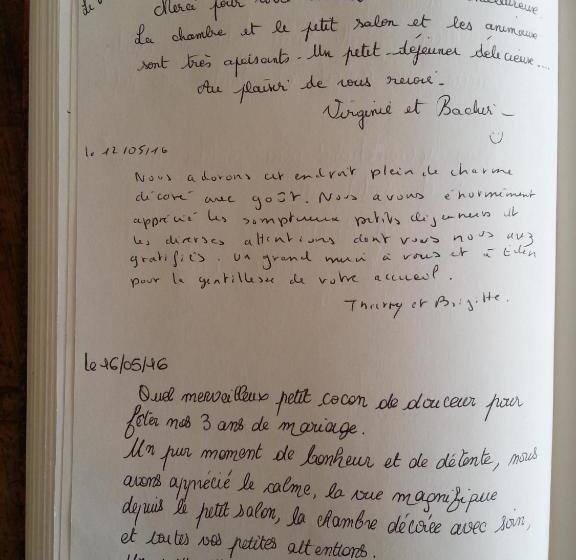 Merci pour
La chambre et le petit salon et les animaux
sont très apaisants. Un petit déjeuner délicieux....
Au plaisir de vous revoir.
Virginie et Bachir
le 12/05/16
Nous adorons cet endroit plein de charme
décoré avec goût. Nous avons énormément
apprécié les somptueux petits déjeuners et
les diverses attentions dont vous nous avez
gratifiés. Un grand merci à vous et à
pour la gentillesse de votre accueil.
Thierry et Brigitte.
le 16/05/16
Quel merveilleux petit cocon de douceur pour
fêter nos 3 ans de mariage.
Un pur moment de bonheur et de détente, nous
avons apprécié le calme, la vue magnifique
depuis le petit salon, la chambre décorée avec soin,
et toutes vos petites attentions.